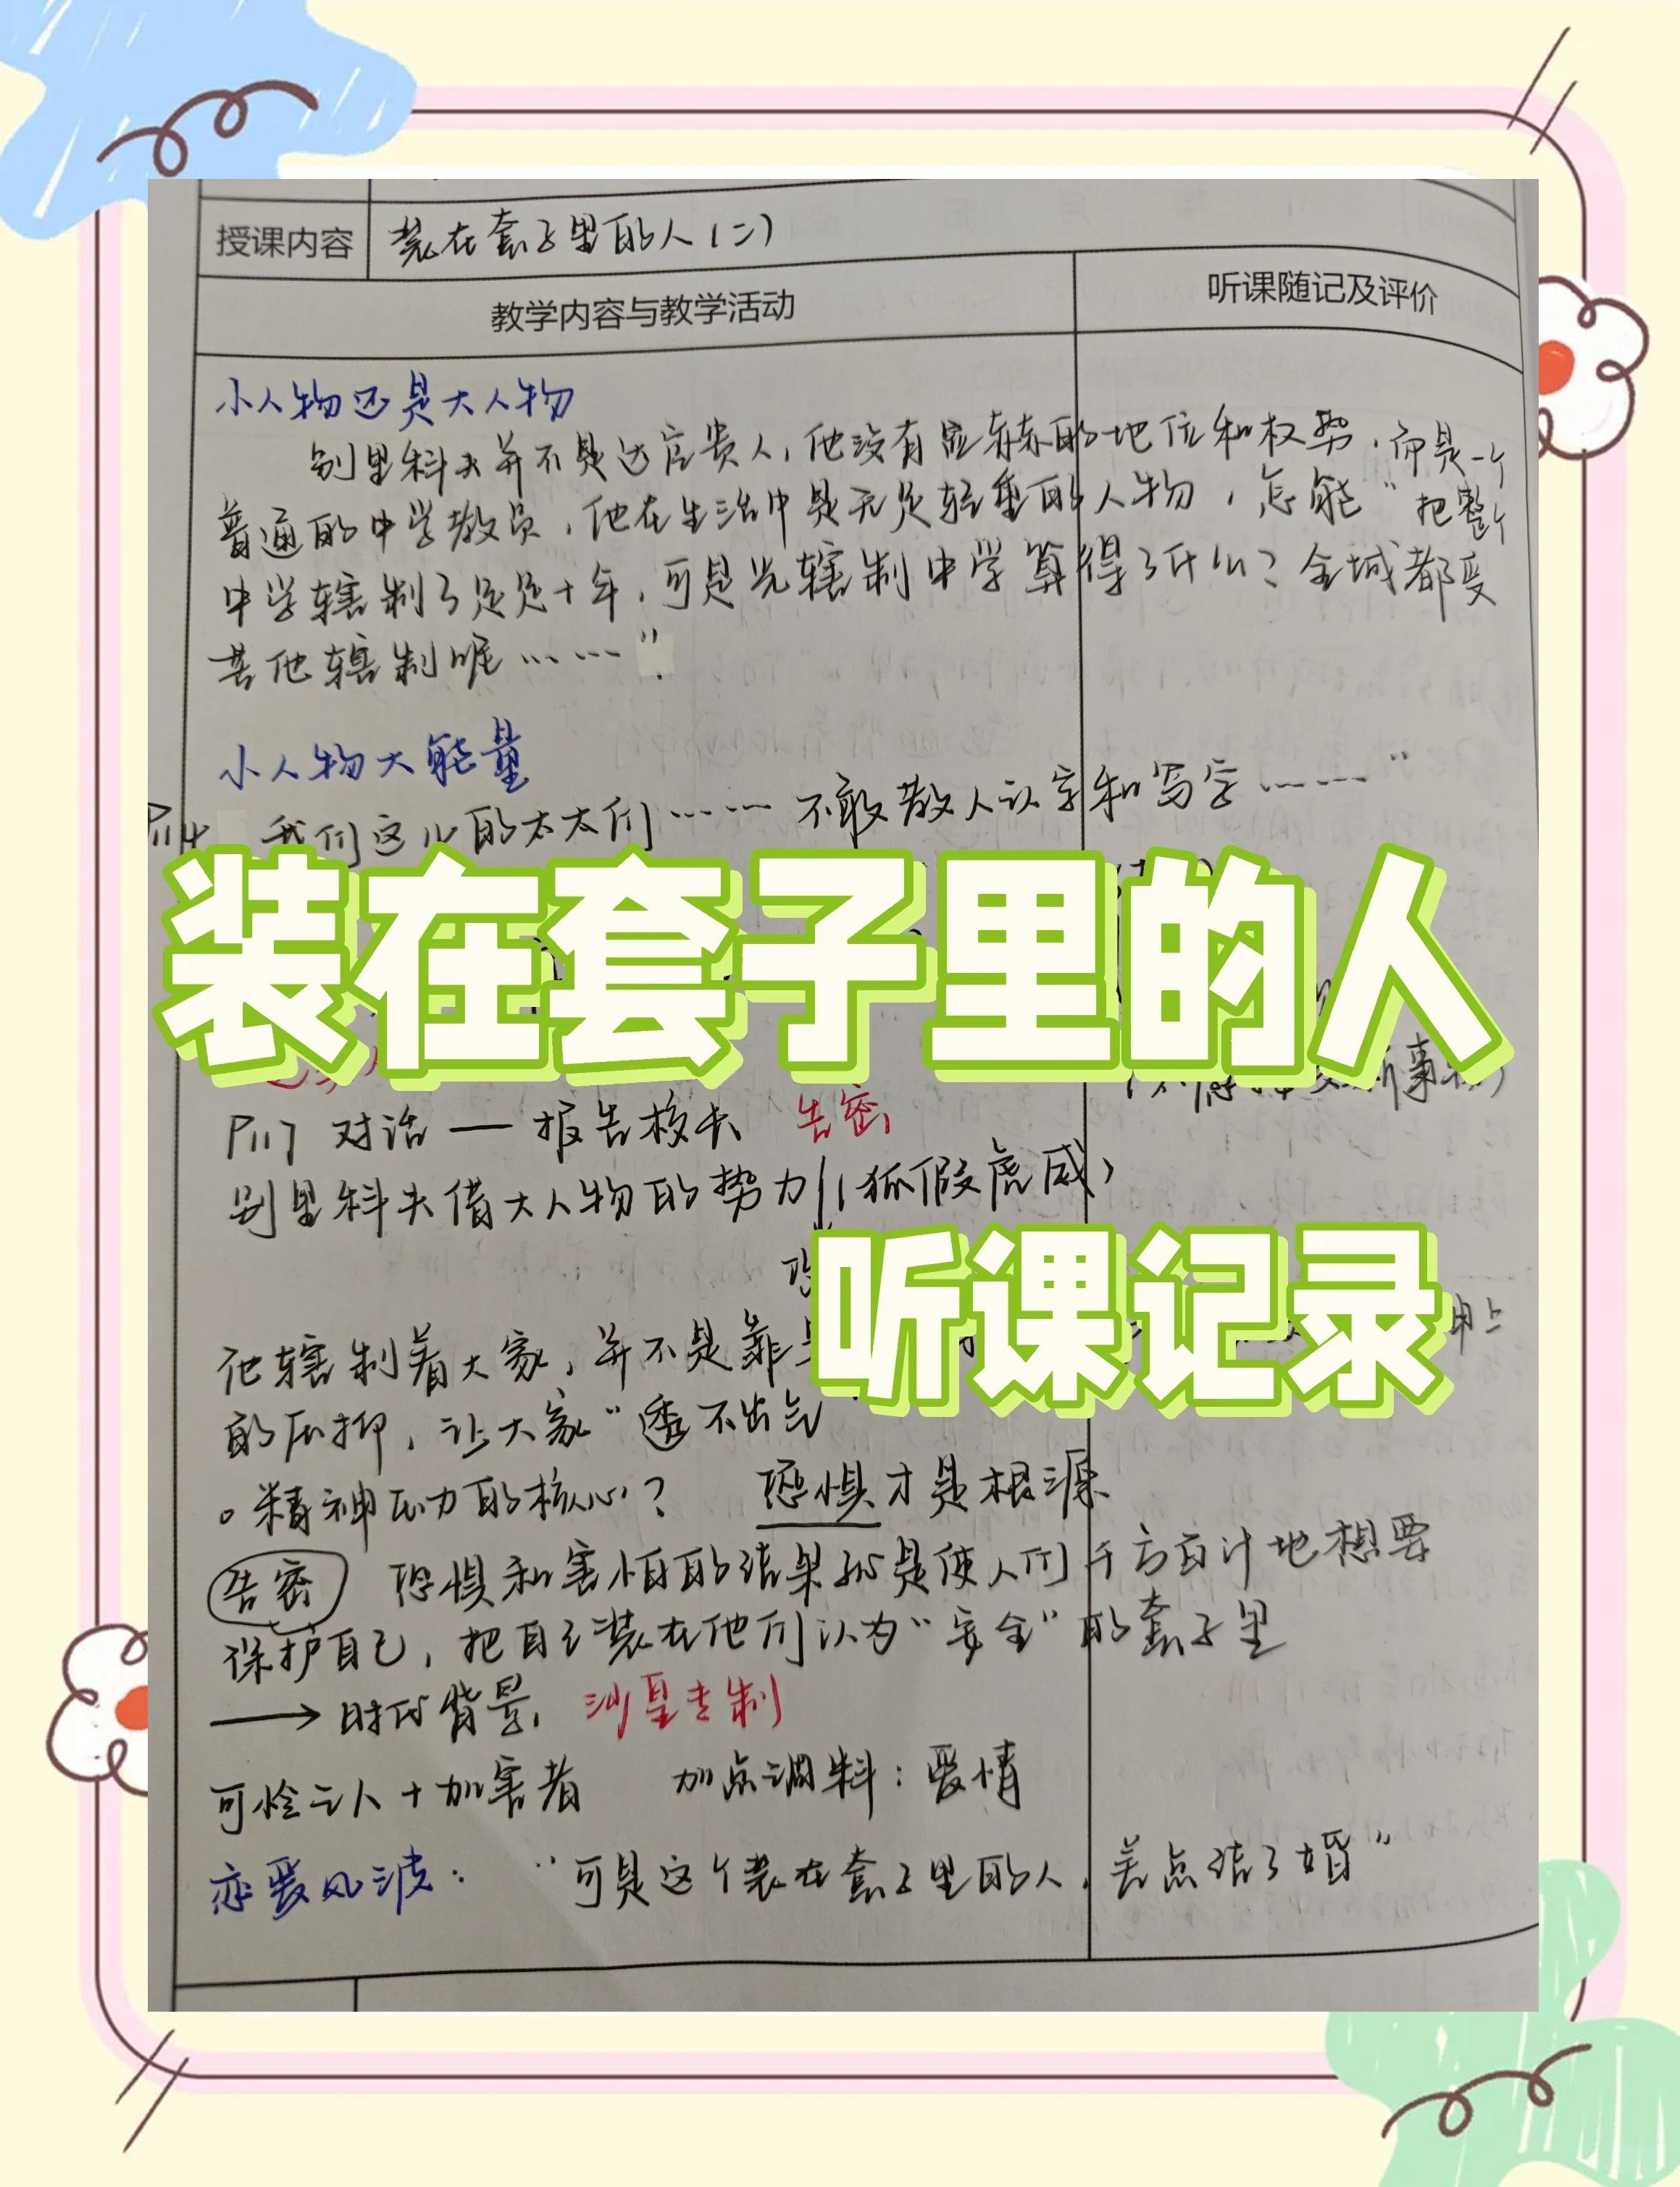 授课内容 装在套子里的人(二)
教学内容与教学活动 听课随记及评价
小人物还是大人物
别里科夫并不是达官贵人,他没有显赫的地位和权势,而是一个
普通的中学教员,他在生活中是无足轻重的人物,怎能“把整个
中学辖制了足足十年,可是光辖制中学算得了什么?全城都受
着他辖制呢……”
小人物大能量
P114 我们这儿的太太们……不敢教人认字和写字……”
装在套子里的人
P117 对话 — 报告校长 告密
别里科夫借大人物的势力(狐假虎威)
听课记录
他辖制着大家,并不是靠
的压抑,让大家“透不出气
。精神压力的核心? 恐惧才是根源
告密 恐惧和害怕的结果就是使人们千方百计地想要
保护自己,把自己装在他们认为“安全”的套子里
→ 时代背景, 沙皇专制
可怜之人+加害者 加点调料:爱情
恋爱风波: “可是这个装在套子里的人,差点结了婚”